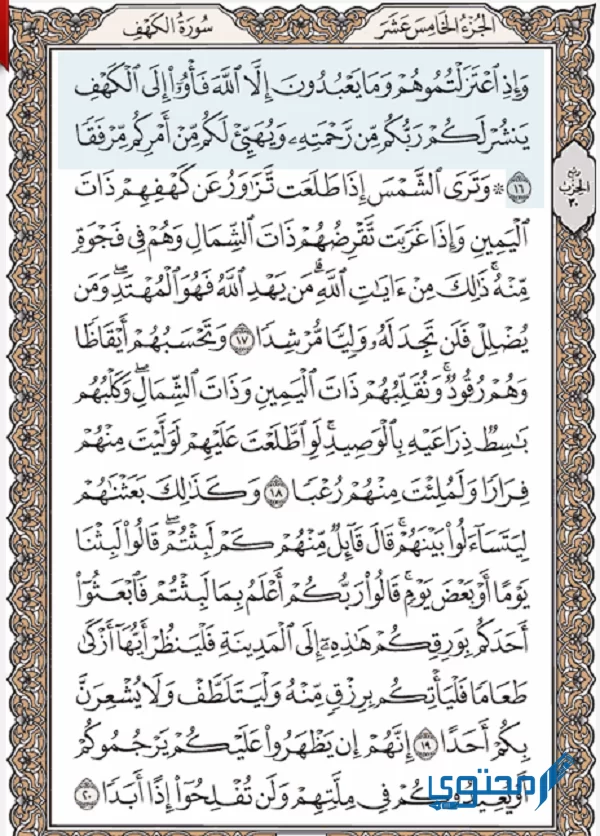 الجُزءُ الخَامِسَ عَشَرَ
سُورَةُ الكَهْفِ
وَإِذِ ٱعْتَزَلْتُمُوهُمْ وَمَا يَعْبُدُونَ إِلَّا ٱللَّهَ فَأْوُۥٓا۟ إِلَى ٱلْكَهْفِ
يَنشُرْ لَكُمْ رَبُّكُم مِّن رَّحْمَتِهِۦ وَيُهَيِّئْ لَكُم مِّنْ أَمْرِكُم مِّرْفَقًا
١٦ ۞ وَتَرَى ٱلشَّمْسَ إِذَا طَلَعَت تَّزَٰوَرُ عَن كَهْفِهِمْ ذَاتَ
ربع
الحزب
٣٠
ٱلْيَمِينِ وَإِذَا غَرَبَت تَّقْرِضُهُمْ ذَاتَ ٱلشِّمَالِ وَهُمْ فِى فَجْوَةٍ
مِّنْهُ ۚ ذَٰلِكَ مِنْ ءَايَٰتِ ٱللَّهِ ۗ مَن يَهْدِ ٱللَّهُ فَهُوَ ٱلْمُهْتَدِ ۖ وَمَن
يُضْلِلْ فَلَن تَجِدَ لَهُۥ وَلِيًّا مُّرْشِدًا ١٧ وَتَحْسَبُهُمْ أَيْقَاظًا
وَهُمْ رُقُودٌ ۚ وَنُقَلِّبُهُمْ ذَاتَ ٱلْيَمِينِ وَذَاتَ ٱلشِّمَالِ ۖ وَكَلْبُهُم
بَٰسِطٌ ذِرَاعَيْهِ بِٱلْوَصِيدِ ۚ لَوِ ٱطَّلَعْتَ عَلَيْهِمْ لَوَلَّيْتَ مِنْهُمْ
فِرَارًا وَلَمُلِئْتَ مِنْهُمْ رُعْبًا ١٨ وَكَذَٰلِكَ بَعَثْنَٰهُمْ
لِيَتَسَآءَلُوا۟ بَيْنَهُمْ ۚ قَالَ قَآئِلٌ مِّنْهُمْ كَمْ لَبِثْتُمْ ۖ قَالُوا۟ لَبِثْنَا
يَوْمًا أَوْ بَعْضَ يَوْمٍ ۚ قَالُوا۟ رَبُّكُمْ أَعْلَمُ بِمَا لَبِثْتُمْ فَٱبْعَثُوٓا۟
أَحَدَكُم بِوَرِقِكُمْ هَٰذِهِۦٓ إِلَى ٱلْمَدِينَةِ فَلْيَنظُرْ أَيُّهَآ أَزْكَىٰ
طَعَامًا فَلْيَأْتِكُم بِرِزْقٍ مِّنْهُ وَلْيَتَلَطَّفْ وَلَا يُشْعِرَنَّ
بِكُمْ أَحَدًا ١٩ إِنَّهُمْ إِن يَظْهَرُوا۟ عَلَيْكُمْ يَرْجُمُوكُمْ
أَوْ يُعِيدُوكُمْ فِى مِلَّتِهِمْ وَلَن تُفْلِحُوٓا۟ إِذًا أَبَدًا ٢٠
محتوى